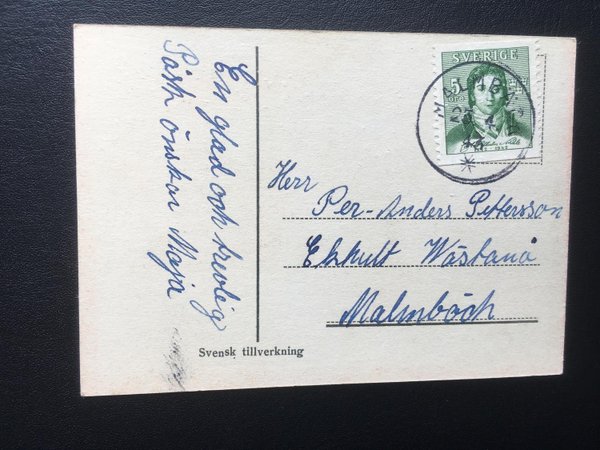 En glad och trevlig
Påsk önskar Maja
SVERIGE
5
Herr
Per-Anders Pettersson
Ekhult Wästanå
Malmbäck
Svensk tillverkning